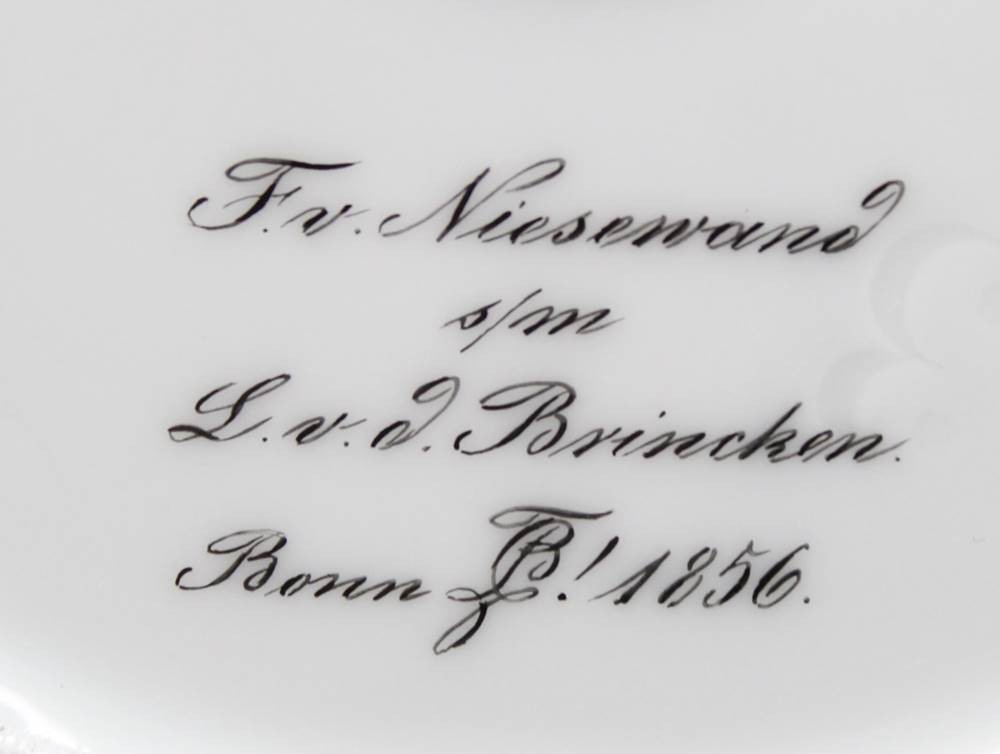 F. v. Niesewand
s/m
L. v. d. Brincken.
Bonn ! 1856.